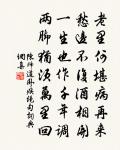 老里何堪病再來
愁邊不復酒相開
一生也作千年調
兩腳猶須萬里回
陳師道臥疾絕句詞典
網集